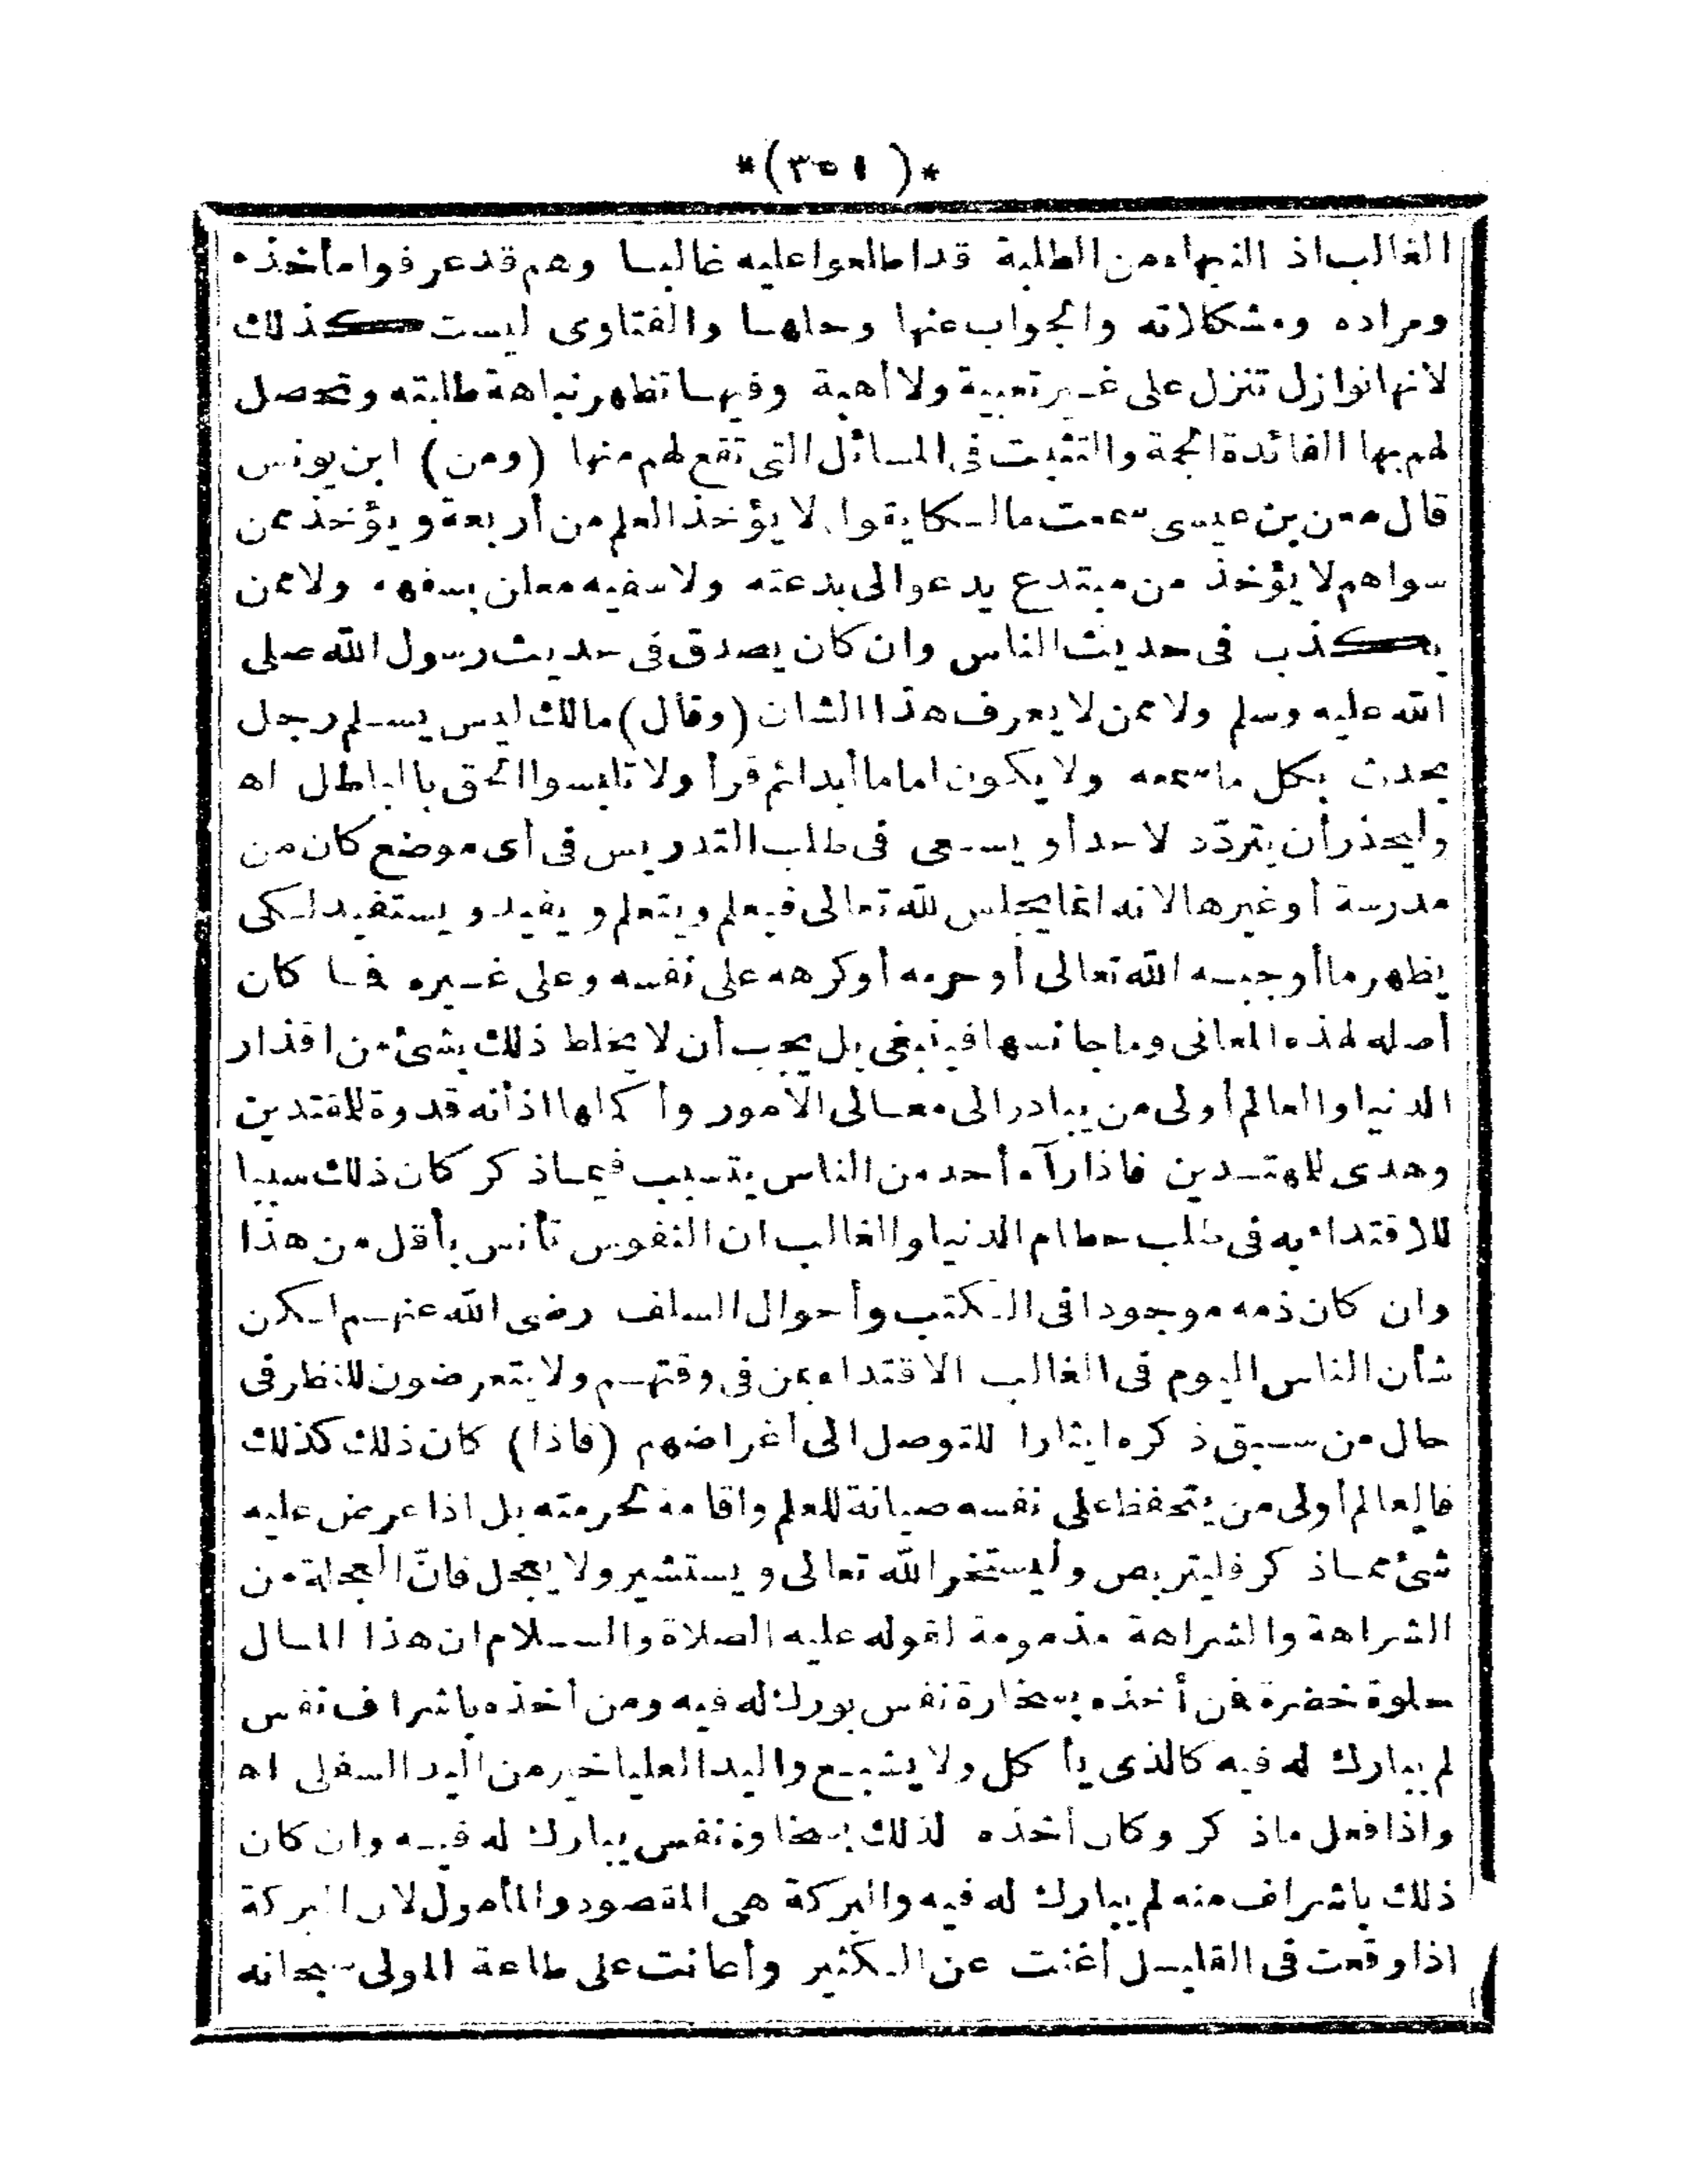 *( ٣٥١ )*
الغالب اذ النبهاء من الطلبة قد اطلعوا عليه غالبا وهم قد عرفوا مأخذه
ومراده ومشكلاته والجواب عنها وحلها والفتاوى ليست كذلك
لانها نوازل تنزل على غير تعبية ولا أهبة وفيها تظهر نباهة طلبته وتحصل
لهم بها الفائدة الجمة والتثبت فى المسائل التى تقع لهم منها (ومن) ابن يونس
قال معن بن عيسى سمعت مالكا يقول لا يؤخذ العلم من أربعة ويؤخذ ممن
سواهم لا يؤخذ من مبتدع يدعو الى بدعته ولا سفيه معلن بسفهه ولا ممن
يكذب فى حديث الناس وان كان يصدق فى حديث رسول الله صلى
الله عليه وسلم ولا ممن لا يعرف هذا الشان (وقال) مالك ليس يسلم رجل
يحدث بكل ما سمعه ولا يكون اماما أبدا ثم قرأ ولا تلبسوا الحق بالباطل اه
وليحذر أن يتردّد لاحد أو يسعى فى طلب التدريس فى أى موضع كان من
مدرسة أو غيرها لانه انما يجلس لله تعالى فيعلم ويتعلم ويفيد ويستفيد لكى
يظهر ما أوجبه الله تعالى أو حرمه أو كرهه على نفسه وعلى غيره فما كان
أصله لهذه المعانى وما جانسها فينبغى بل يجب أن لا يخلط ذلك بشئ من اقذار
الدنيا والعالم أولى من يبادر الى معالى الأمور وأكملها اذ أنه قدوة للمقتدين
وهدى للمهتدين فاذا رآه أحد من الناس يتسبب فيما ذكر كان ذلك سببا
للاقتداء به فى طلب حطام الدنيا والغالب ان النفوس تأنس بأقل من هذا
وان كان ذمه موجودا فى الكتب وأحوال السلف رضى الله عنهم لكن
شأن الناس اليوم فى الغالب الاقتداء بمن فى وقتهم ولا يتعرضون للنظر فى
حال من سبق ذكره ايثارا للتوصل الى أغراضهم (فاذا) كان ذلك كذلك
فالعالم أولى من يتحفظ على نفسه صيانة للعلم واقامة لحرمته بل اذا عرض عليه
شئ مما ذكر فليتربص وليستخر الله تعالى ويستشير ولا يعجل فانّ العجلة من
الشراهة والشراهة مذمومة لقوله عليه الصلاة والسلام ان هذا المال
حلوة خضرة فمن أخذه بسخاوة نفس بورك له فيه ومن أخذه باشراف نفس
لم يبارك له فيه كالذى يأكل ولا يشبع واليد العليا خير من اليد السفلى اه
واذا فعل ما ذكر وكان أخذه لذلك بسخاوة نفس يبارك له فيه وان كان
ذلك باشراف منه لم يبارك له فيه والبركة هى المقصود والمأمول لان البركة
اذا وقعت فى القليل أغنت عن الكثير وأعانت على طاعة المولى سبحانه